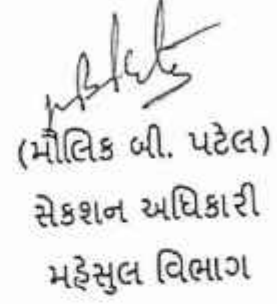 (મૌલિક બી. પટેલ)
સેકશન અધિકારી
મહેસુલ વિભાગ